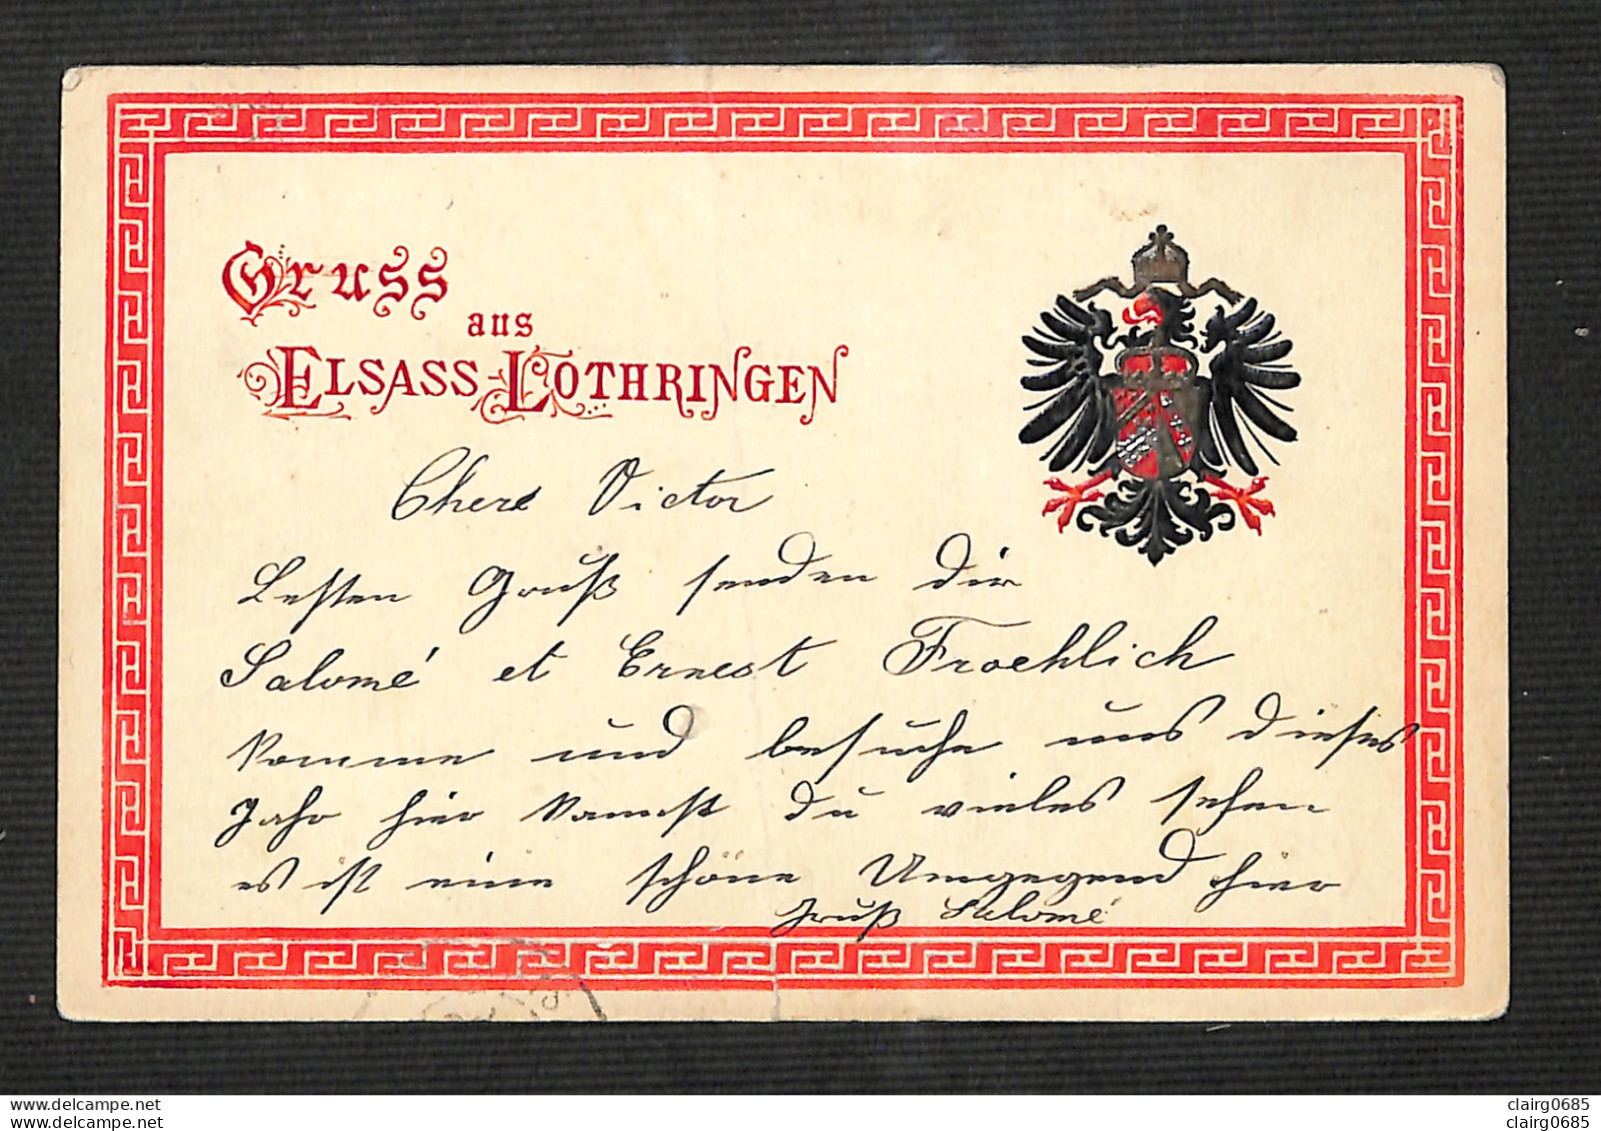 Gruss
aus
ELSASS-LOTHRINGEN
Chere Victor
Besten Gruß senden dir
Salomé et Ernest Froehlich
komme und besuche uns dieses
Jahr hier kannst du vieles sehen
es ist eine schöne Umgegend hier
Gruß Salomé
clairg0685
clairg0685
clairg0685
clairg0685